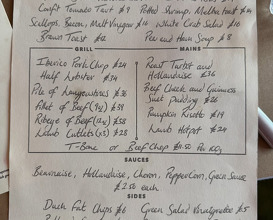 Confit Tomato Tart £9 Potted Shrimp, Melba toast £14
Scallops, Bacon, Malt Vinegar £16 White Crab Salad £16
Brown Toast £2 Pea and Ham Soup £8
GRILL
MAINS
Iberico Pork Chop £24
Half Lobster £34
Pie of Langoustines £36
Fillet of Beef (9z) £38
Ribeye of Beef (12z) £38
Lamb Cutlets (x3) £28
Roast Turbot and
Hollandaise £36
Beef Cheek and Guinness
Suet Pudding £26
Pumpkin Risotto £19
Lamb Hotpot £24
T-Bone or Beef Chop £11.50 Per 100g
SAUCES
Bearnaise, Hollandaise, Choron, Peppercorn, Green Sauce
£2.50 each
SIDES
Duck Fat Chips £6 Green Salad Vinaigrette £5